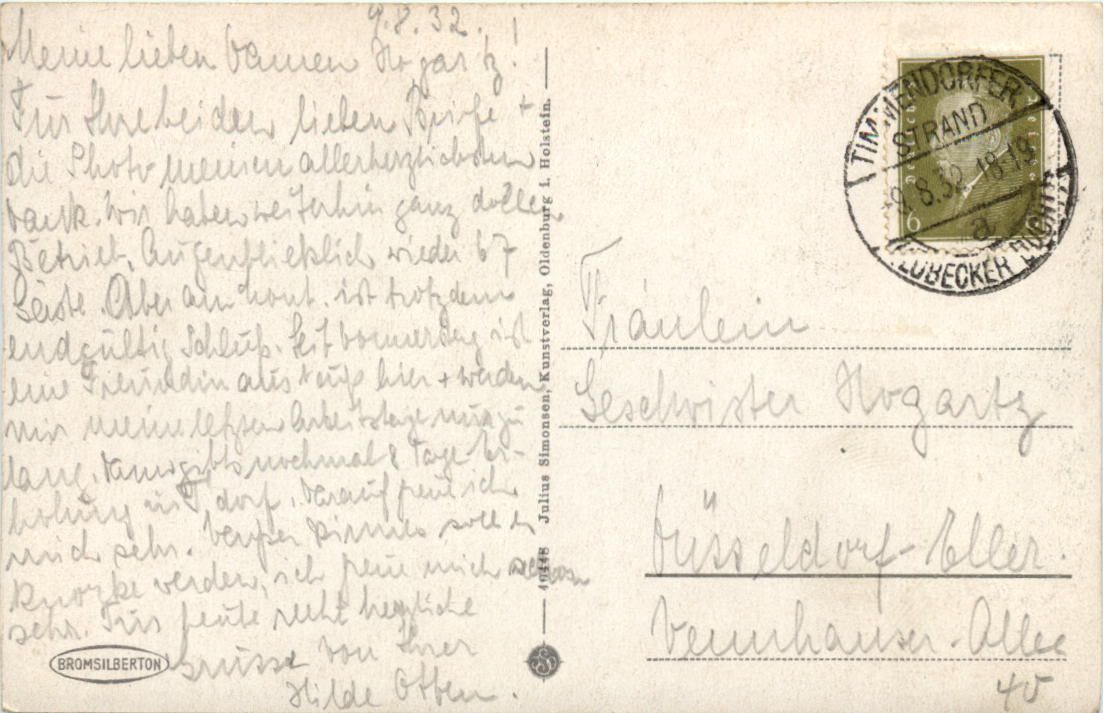 9.8.32.
Meine lieben Damen Hogartz!
Für Ihre beiden lieben Briefe +
die Photo meinen allerherzlichsten
Dank. Wir haben weiterhin ganz dollen
Betrieb, Augenblicklich wieder 67
Gäste. Aber am ist trotzdem
endgültig Schluß. Seit Donnerstag ist
eine Freundin aus hier + werden
mir meine letzten Arbeitstage nur zu
lang. Dann gibts nochmal 8 Tage Er-
holung in T'dorf, darauf freue ich
mich sehr. soll ja
Knorke werden, ich freue mich schon
sehr. Für heute recht herzliche
Grüsse von Ihrer
Hilde Otten.
BROMSILBERTON
10448 Julius Simonsen, Kunstverlag, Oldenburg i. Holstein.
TIMMENDORFER
STRAND
9.8.32.18-19
a
LÜBECKER BUCHT
6
Fräulein
Geschwister Hogartz
Düsseldorf-Eller.
Vennhauser-Allee